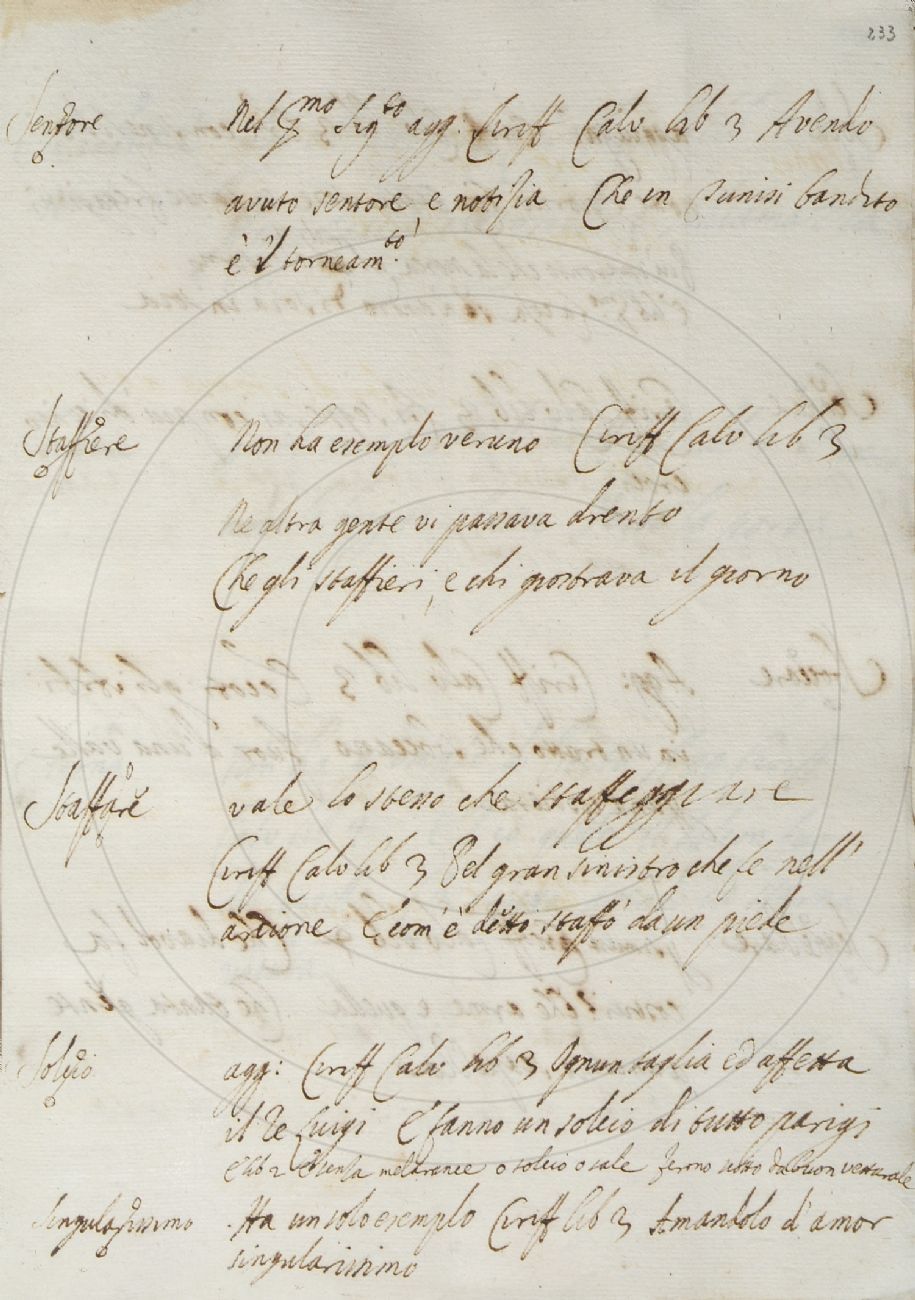 233
Sentore Nel p.mo sig.to agg. Ciriff Calv lib 3 Avendo
avuto sentore, e notizia Che in Tunisi bandito
è il torneam.to
Staffiere Non ha esemplo veruno Ciriff Calv lib 3
Ne altra gente vi passava drento
Che gli staffieri, e chi giostrava il giorno
Staffare vale lo stesso che staffeggiare
Ciriff Calv lib 3 Pel gran sinistro che fe nell'
arcione E com' è detto staffò da un piede
Solcio agg: Ciriff Calv lib 3 Ognun taglia ed affetta
il Re Luigi E fanno un solcio di tutto parigi
E lib 2 E senza melarance o solcio o sale ferno tutto da buon vetturale
Singularissimo Ha un solo esemplo Ciriff lib 3 Amandolo d'amor
singularissimo